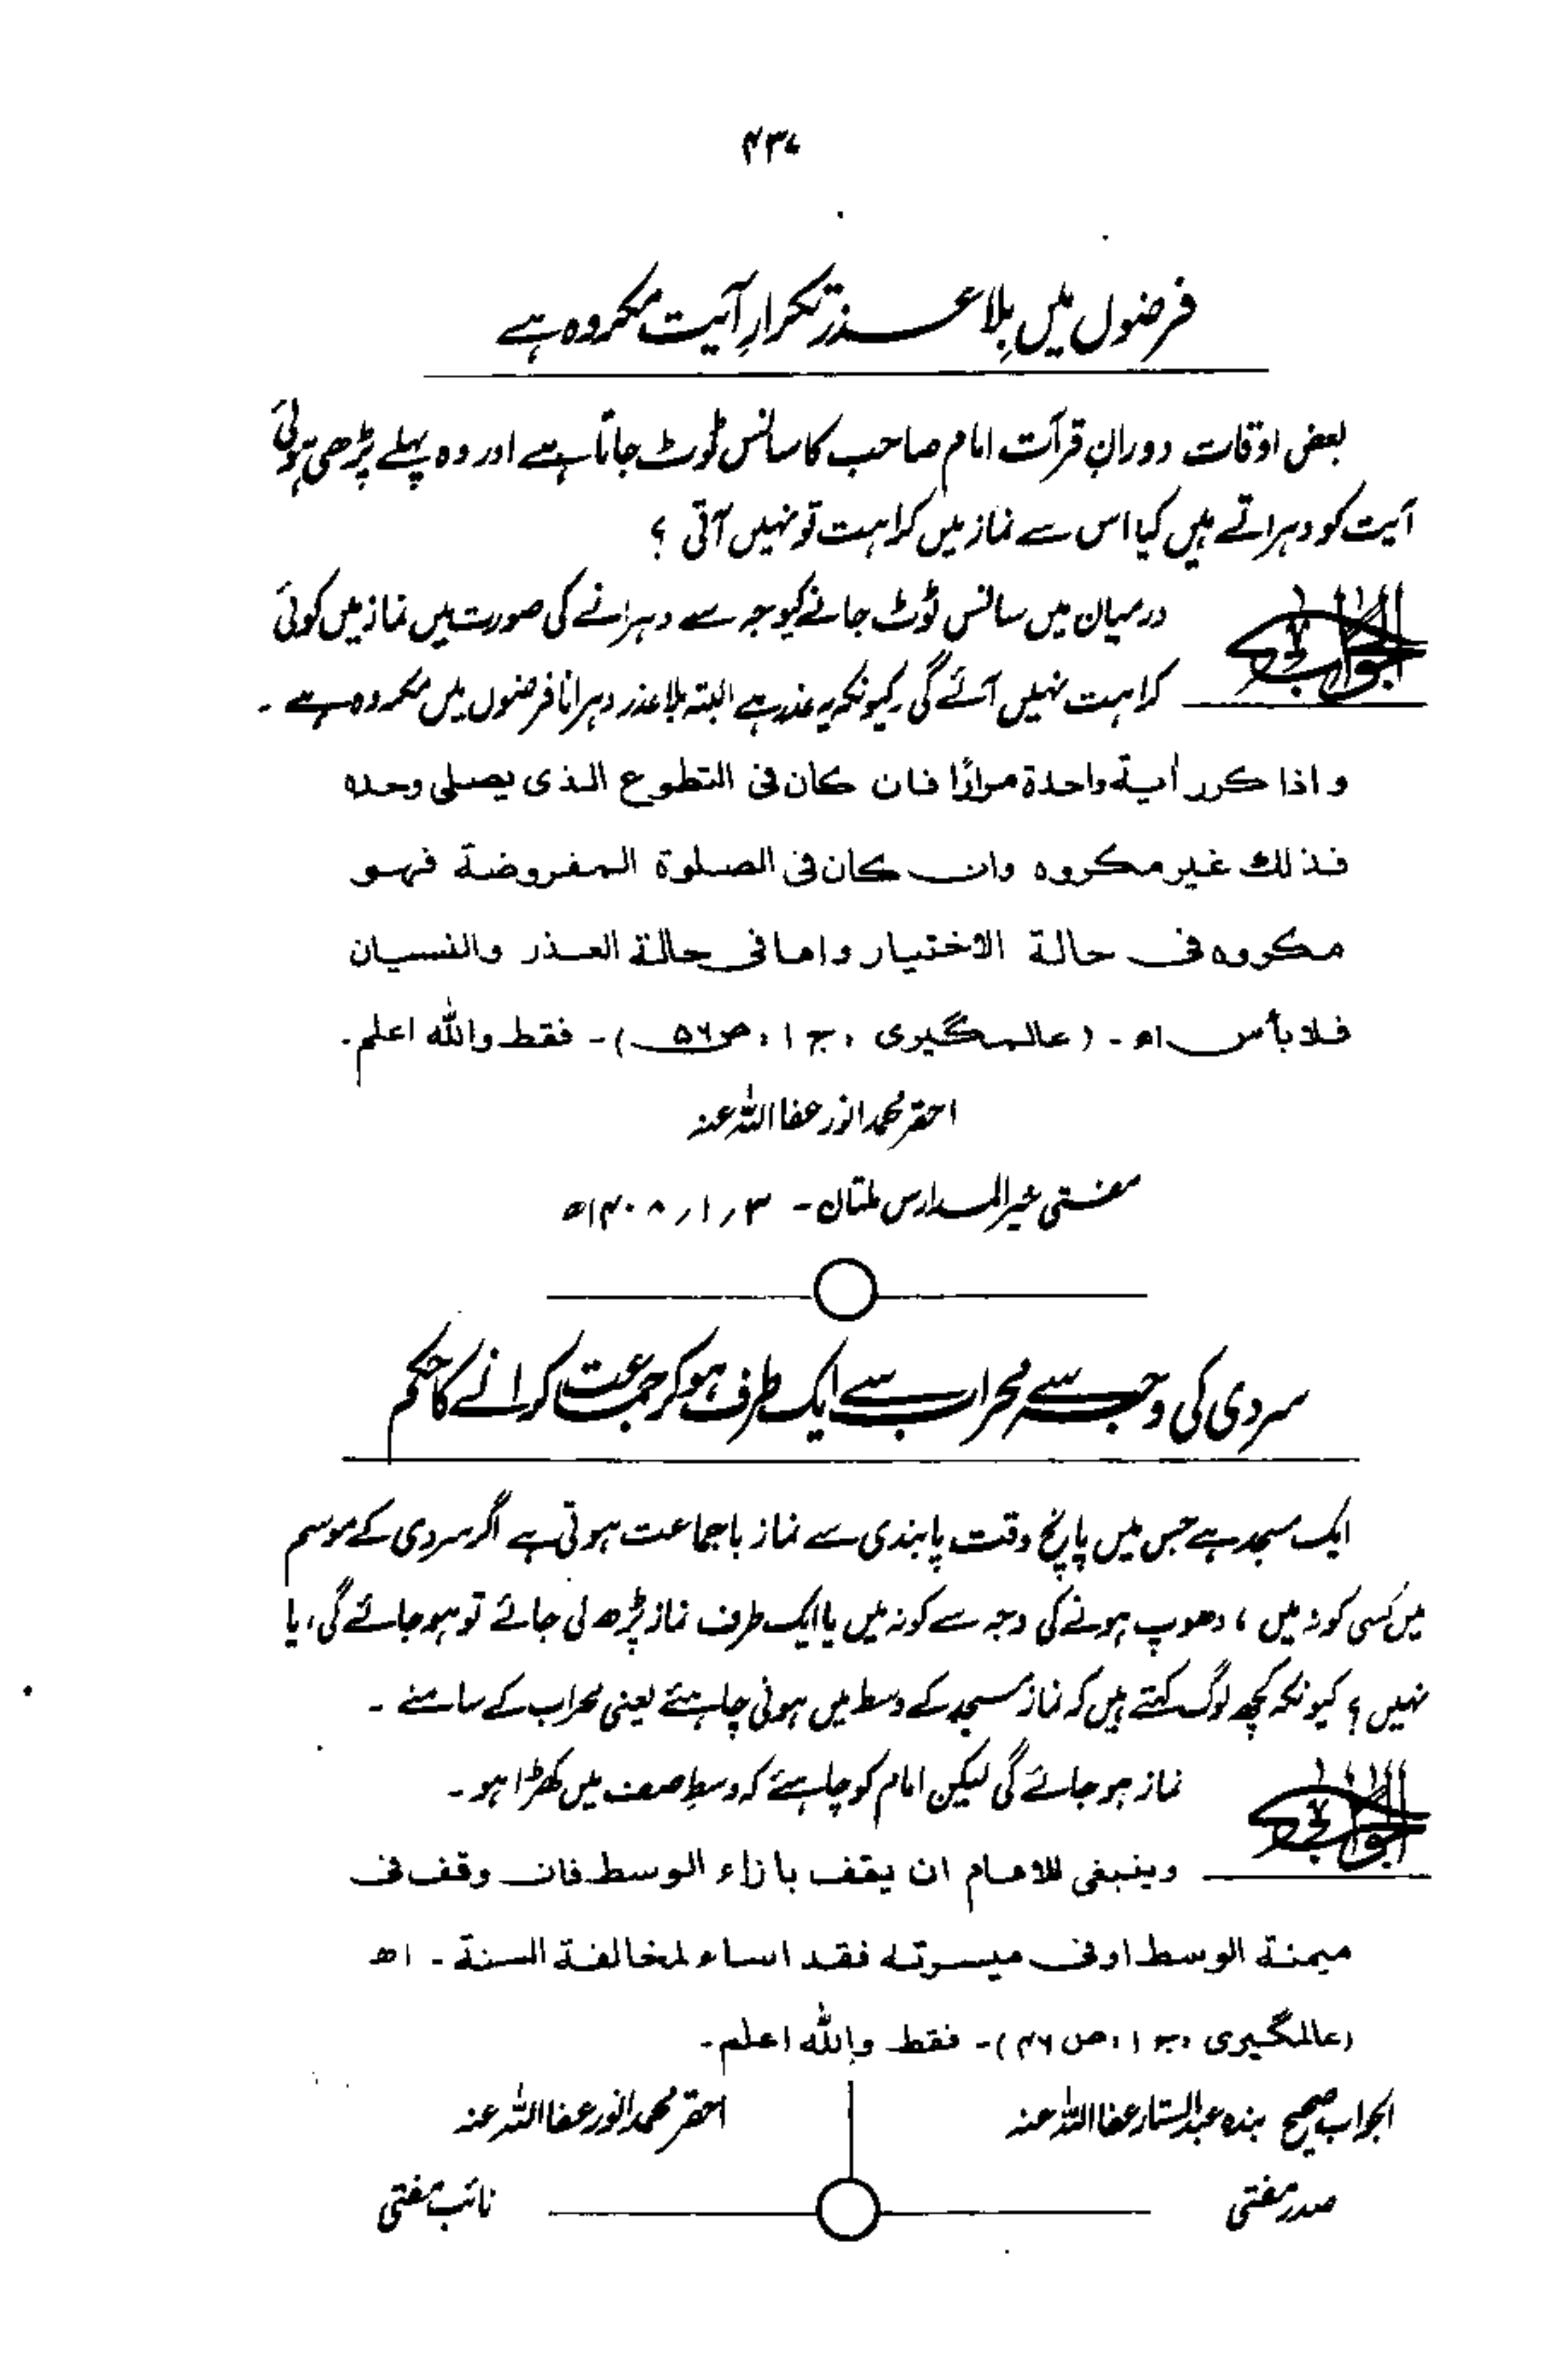 ۴۳۷
فرضوں میں بِلا عذر تکرارِ آیت مکروہ ہے
بعض اوقات دورانِ قرآت امام صاحب کا سانس ٹوٹ جاتا ہے اور وہ پہلے پڑھی ہوئی
آیت کو دہراتے ہیں کیا اس سے نماز میں کراہت تو نہیں آتی ؟
الجواب درمیان میں سانس ٹوٹ جانے کیوجہ سے دہرانے کی صورت میں نماز میں کوئی
کراہت نہیں آئے گی کیونکہ یہ عذر ہے البتہ بلا عذر دہرانا فرضوں میں مکروہ ہے ۔
و اذا کرر أیۃ واحدۃ مرارًا فان کان فی التطوع الذی یصلی وحدہ
فذلك غیر مکروہ وان کان فی الصلوۃ المفروضۃ فهو
مکروہ فی حالۃ الاختیار واما فی حالۃ العذر والنسیان
فلا بأس اھ ۔ (عالمگیری ، ج ۱ ، ص۵۶)۔ فقط واللہ اعلم۔
احقر محمد انور عفا اللہ عنہ
مفتی خیر المدارس ملتان ۔ ۳ ر ۱ ر ۱۴۰۸ھ
سردی کی وجہ سے محراب سے ایک طرف ہو کر جماعت کرانے کا حکم
ایک مسجد ہے جس میں پانچ وقت پابندی سے نماز باجماعت ہوتی ہے اگر سردی کے موسم
میں کسی کونہ میں ، دھوپ ہونے کی وجہ سے کونہ میں یا ایک طرف نماز پڑھ لی جائے تو ہو جائے گی، یا
نہیں ؟ کیونکہ کچھ لوگ کہتے ہیں کہ نماز مسجد کے وسط میں ہونی چاہئے یعنی محراب کے سامنے ۔
الجواب نماز ہو جائے گی لیکن امام کو چاہئے کہ وسطِ صف میں کھڑا ہو ۔
وینبغی للامام ان یقف بازاء الوسط فان وقف فی
میمنۃ الوسط او فی میسرتہ فقد اساء لمخالفۃ السنۃ ۔ اھ
(عالمگیری ، ج ۱ ، ص ۴۶)۔ فقط واللہ اعلم۔
الجواب صحیح بندہ عبدالستار عفا اللہ عنہ
صدر مفتی
احقر محمد انور عفا اللہ عنہ
نائب مفتی